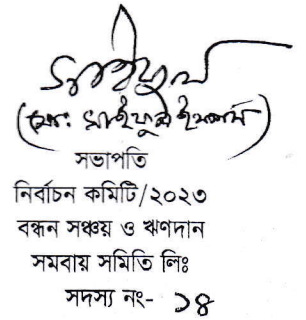 সাইফুল
(মোঃ সাইফুল ইসলাম)
সভাপতি
নির্বাচন কমিটি/২০২৩
বন্ধন সঞ্চয় ও ঋণদান
সমবায় সমিতি লিঃ
সদস্য নং- ১৪